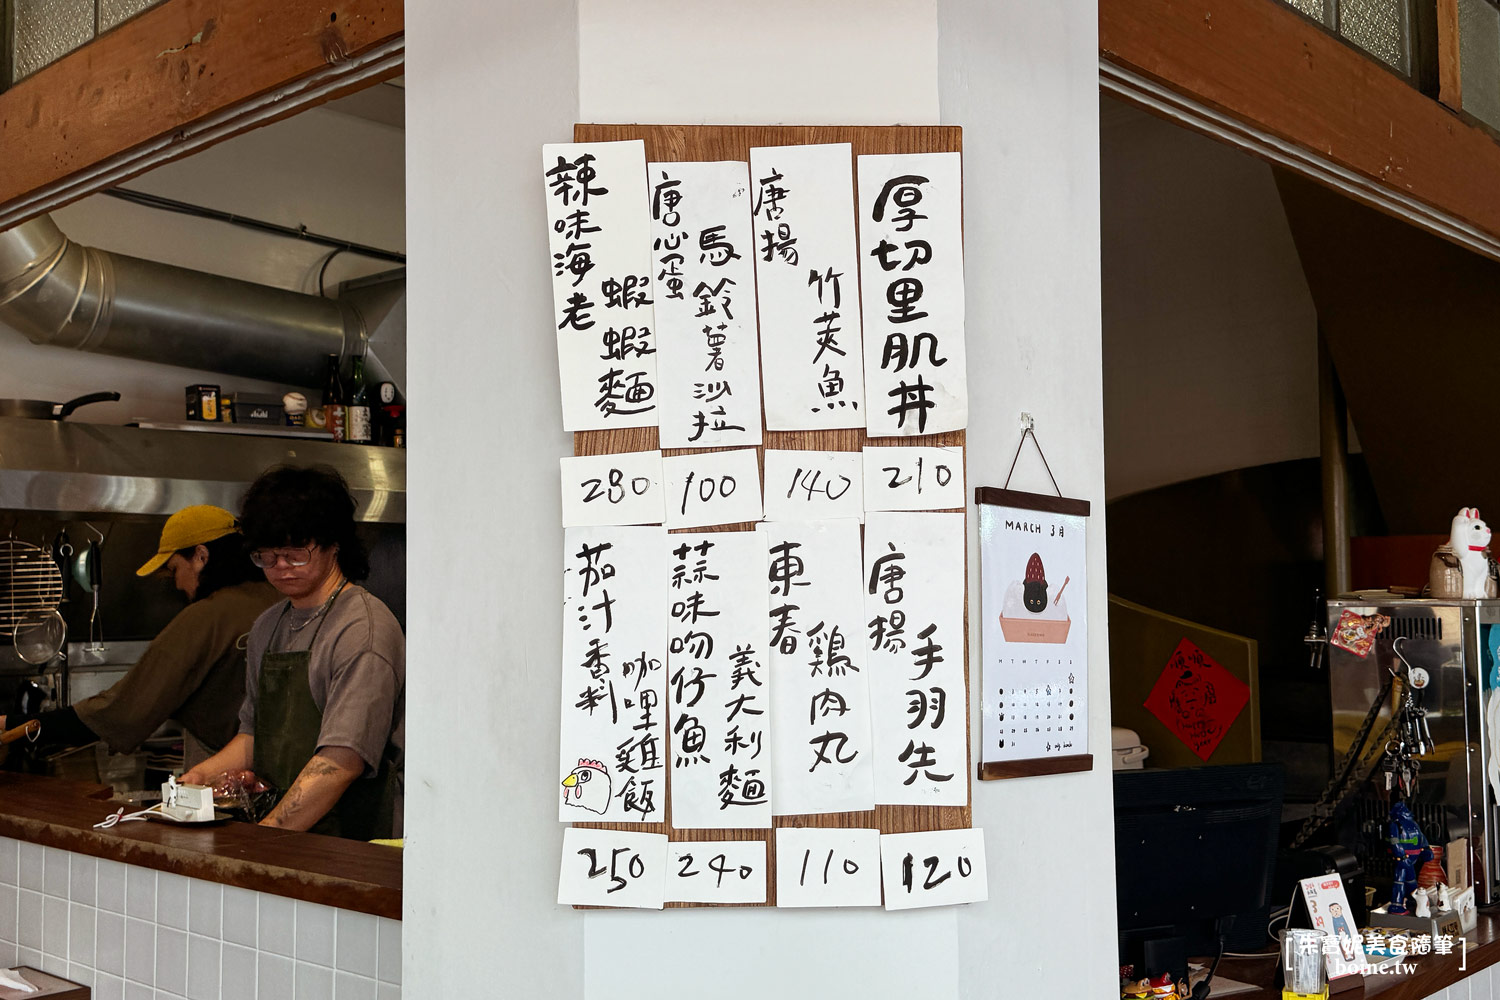 厚切里肌丼
210
唐揚
竹莢魚
140
唐心蛋
馬鈴薯沙拉
100
辣味海老
蝦蝦麵
280
唐揚
手羽先
120
東春
鷄肉丸
110
蒜味吻仔魚
義大利麵
240
茄汁香料
咖哩雞飯
250
MARCH 3月
朱富妮美食隨筆
bonie.tw